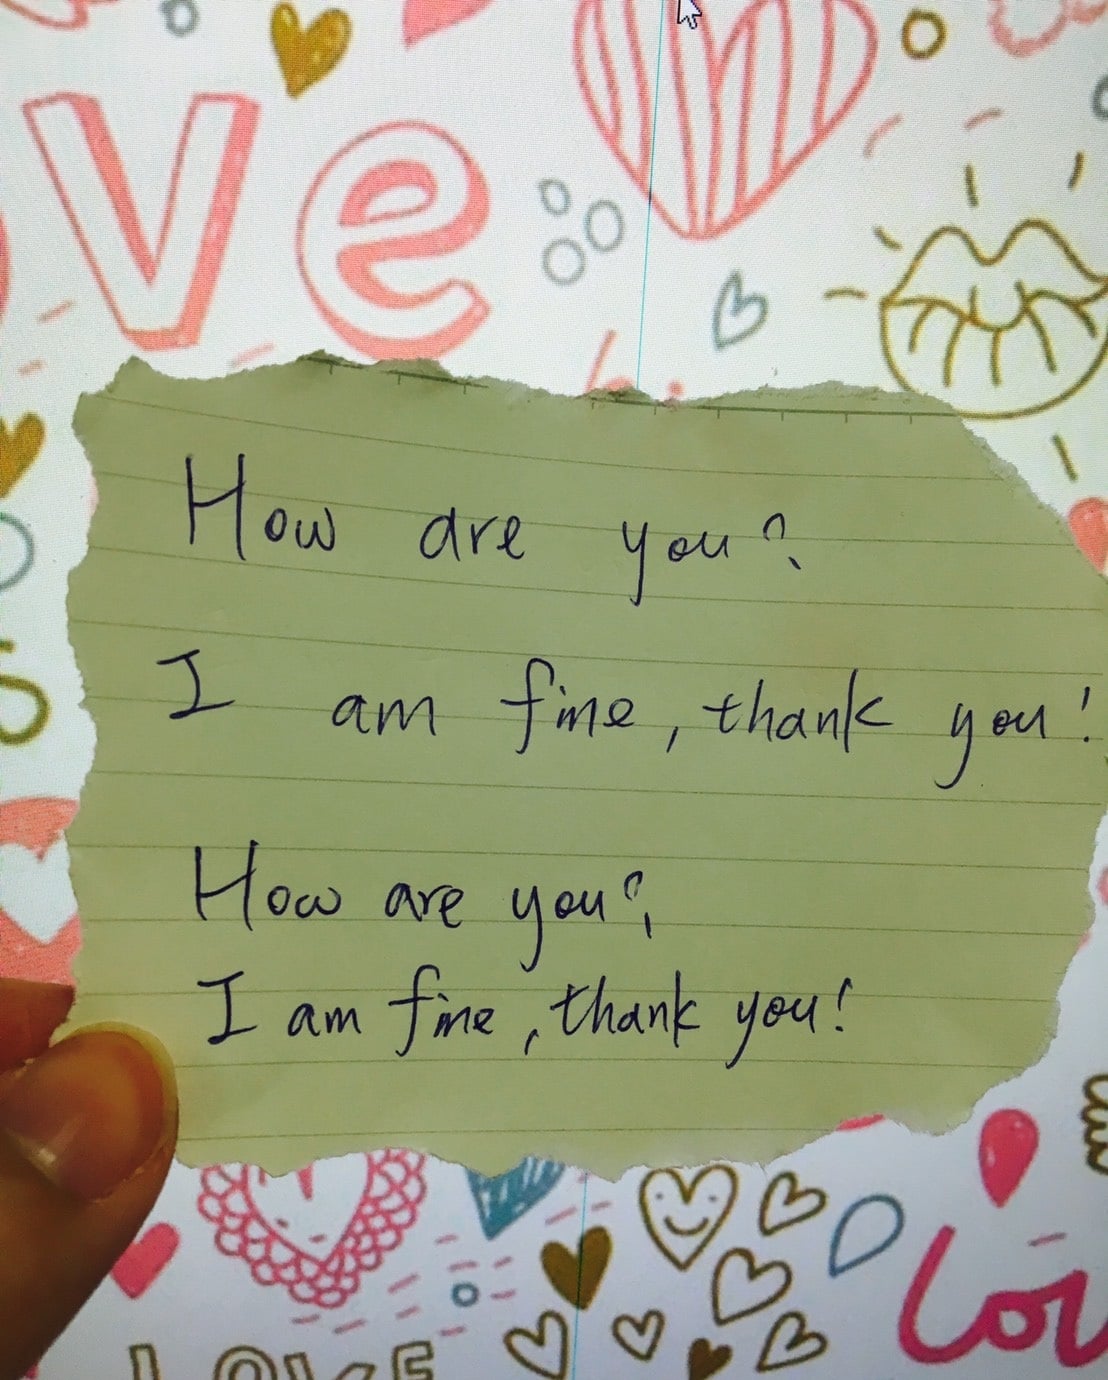 ve
How are you?
I am fine, thank you!
How are you?
I am fine, thank you!
LOVE
Lov